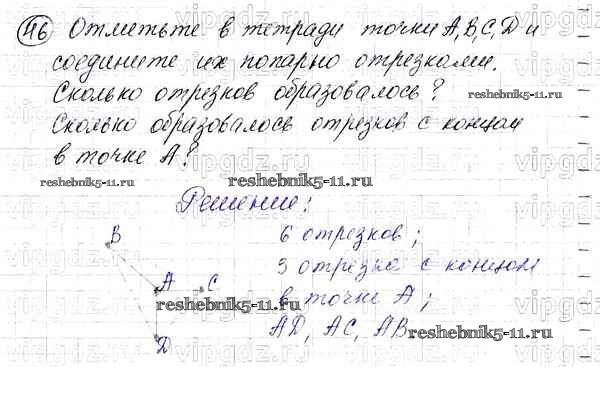 46 Отметьте в тетради точки A, B, C, D и
соедините их попарно отрезками.
Сколько отрезков образовалось?
reshebnik5-11.ru
Сколько образовалось отрезков с концом
в точке A?
reshebnik5-11.ru
reshebnik5-11.ru
Решение:
B
6 отрезков;
3 отрезка с концом
A
C
в точке A;
reshebnik5-11.ru
AD, AC, AB
reshebnik5-11.ru
D
vipgdz.ru